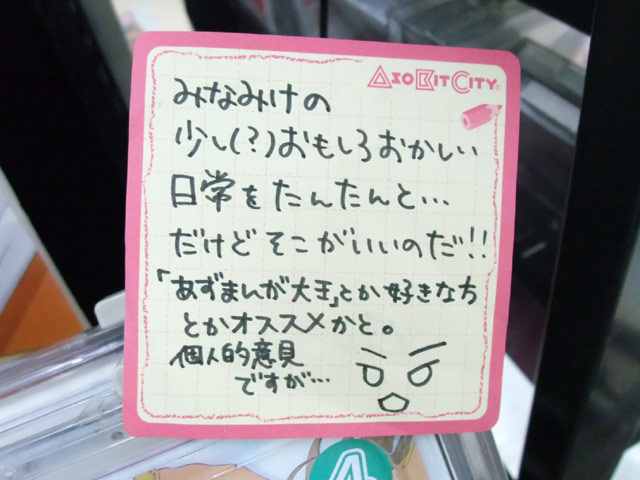 ASOBIT CITY
みなみけの
少し(?)おもしろおかしい
日常をたんたんと…
だけどそこがいいのだ!!
「あずまんが大王」とか好きな方
とかオススメかと。
個人的意見
ですが…
4